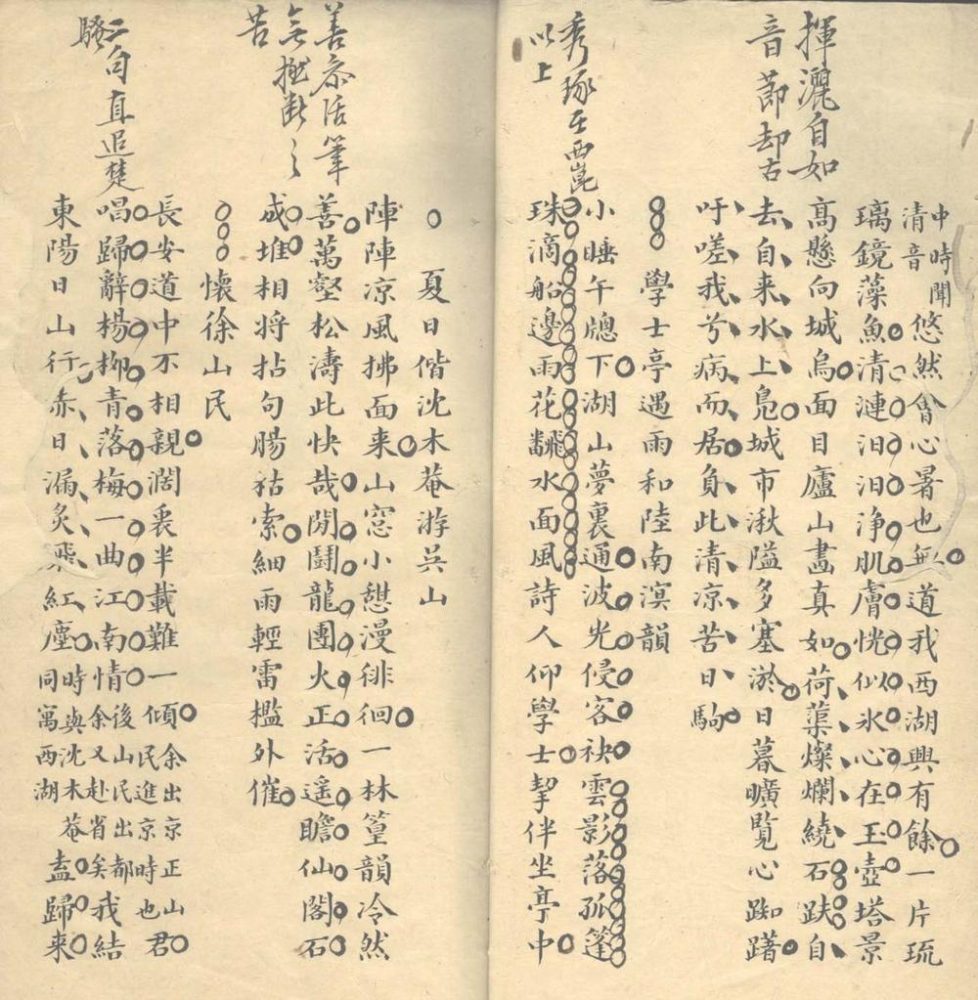 揮灑自如
音節却古
秀琢在西崑
以上
中時聞
清音
悠然會心暑也無道我西湖興有餘一片琉
璃鏡藻魚清漣汩汩淨肌膚恍似氷心在玉壺塔景
高懸向城烏面目廬山畵真如荷蕖燦爛繞石趺自
去自来水上鳧城市湫隘多塞淤日暮曠覧心踟躇
吁嗟我兮病而居負此清凉苦日駒
學士亭遇雨和陸南溟韻
小睡午牕下湖山夢裏通波光侵客袂雲影落孤篷
珠滴船邊雨花飜水面風詩人仰學士挈伴坐亭中
善忝活筆
無
苦
二句直追楚
騷
夏日偕沈木菴游吳山
陣陣凉風拂面来山窓小憇漫徘徊一林篁韻冷然
善萬壑松濤此快哉閒鬪龍團火正活遥瞻仙閣石
成堆相將拈句腸枯索細雨輕雷檻外催
懷徐山民
長安道中不相親濶袠半載難一傾
余出京正山
民進京時也
君
唱歸辭楊柳青落梅一曲江南情
後山民出都
余又赴省矣
我結
東陽日山行赤日漏炙飛紅塵
時與沈木菴
同寓西湖
盍歸来